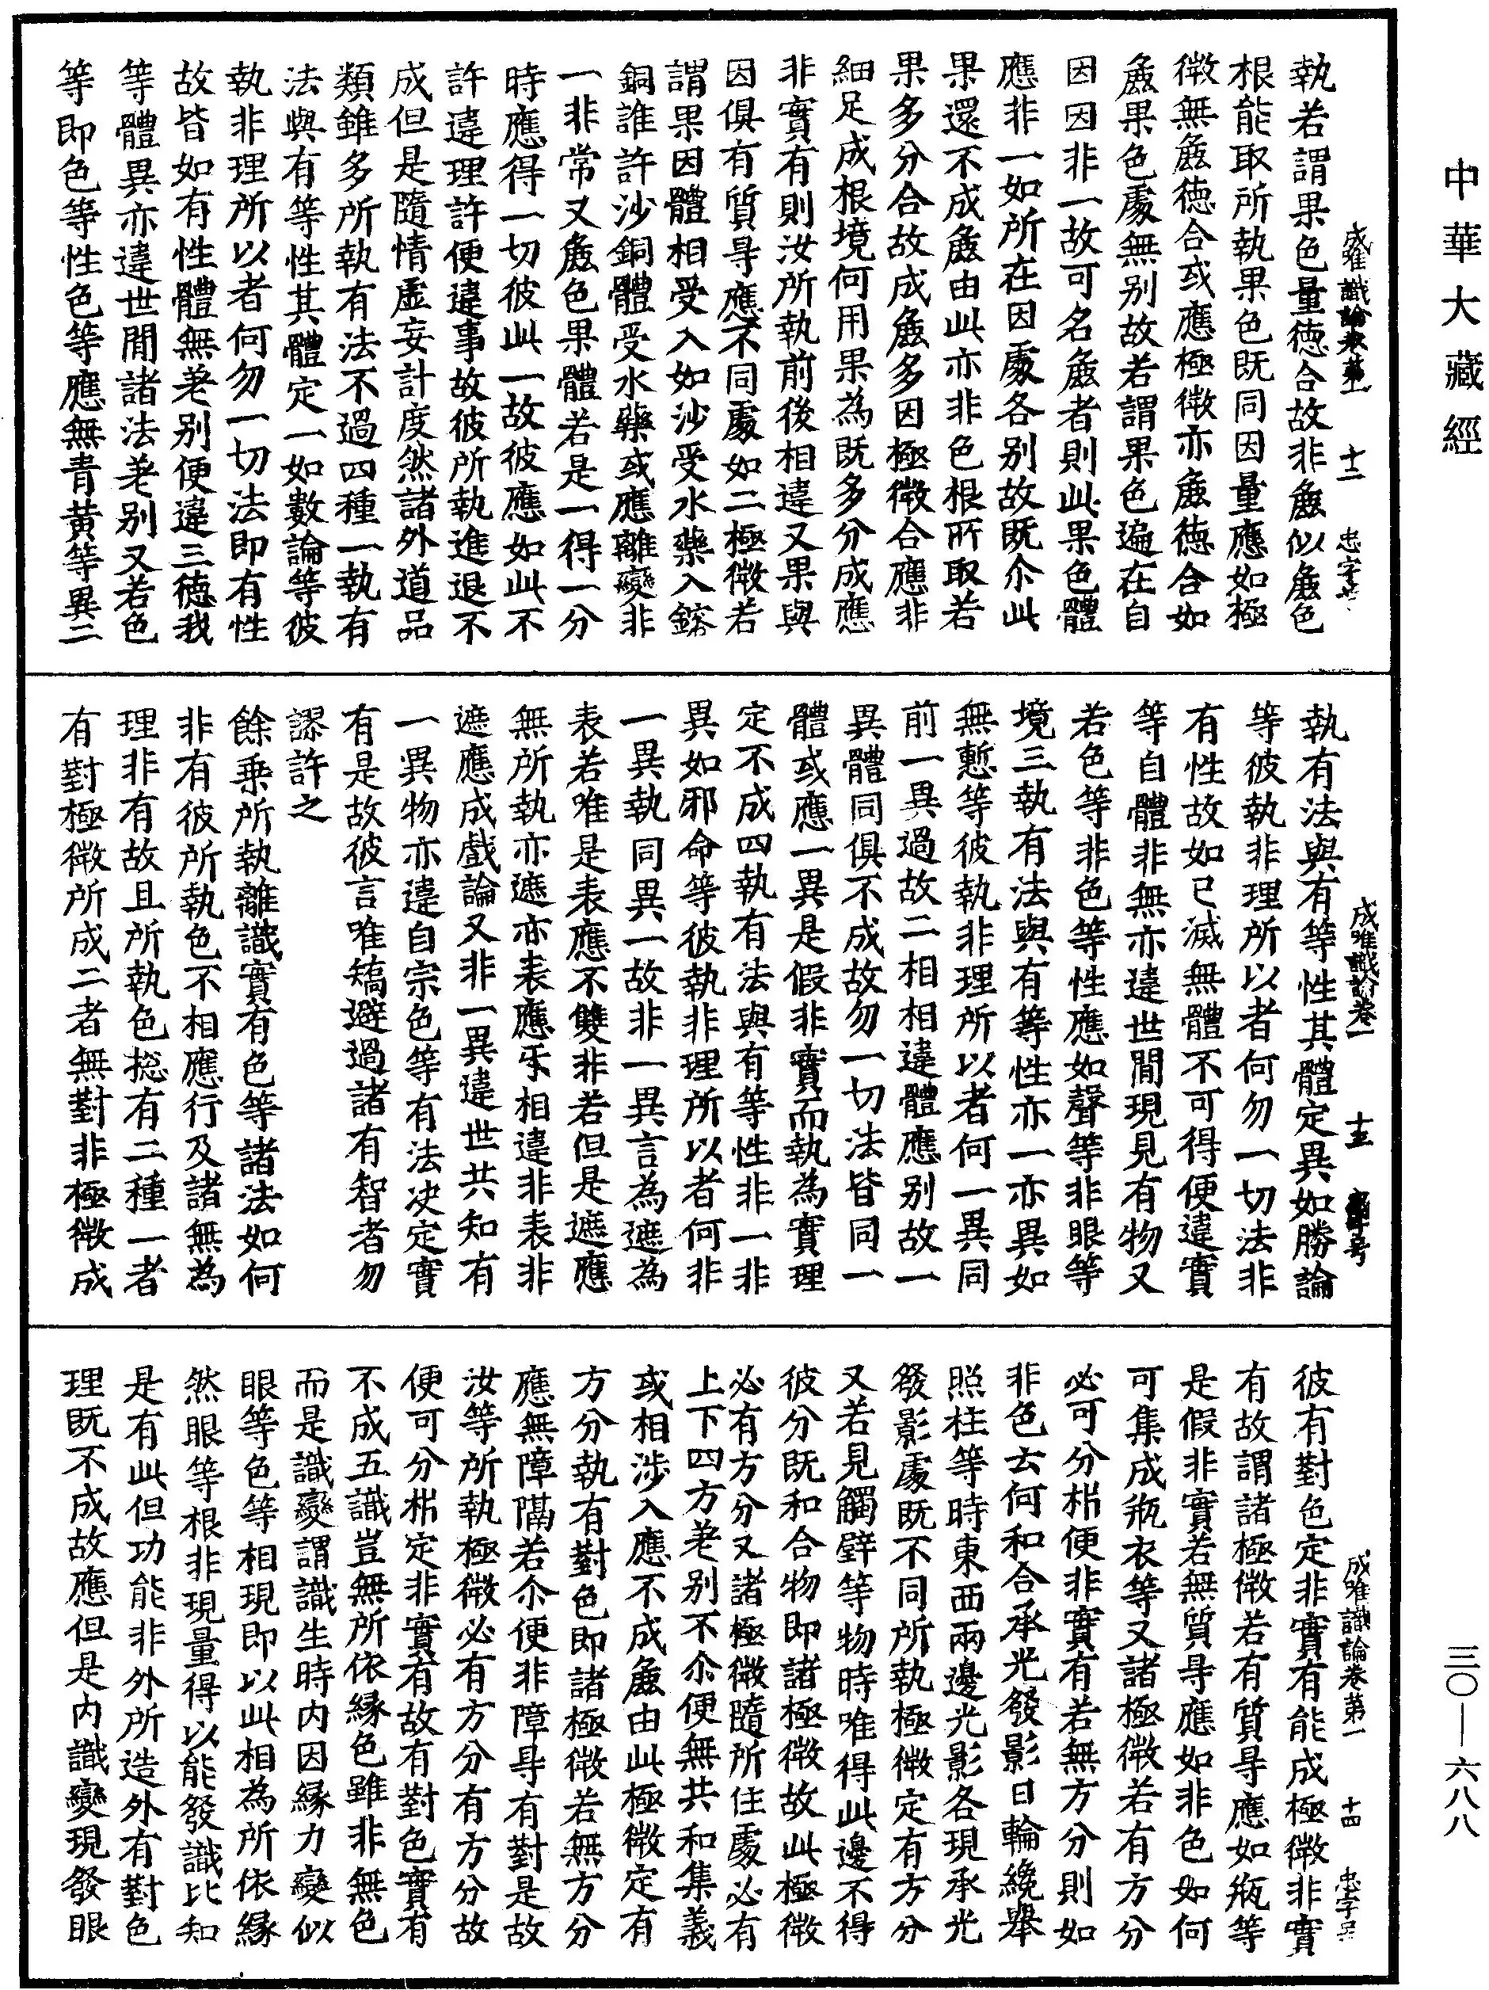 中華大藏經
三〇—六八八
成唯識論卷第一　十二　忠字号
執若謂果色量德合故非麁似麁色
根能取所執果色既同因量應如極
微無麁德合或應極微亦麁德合如
麁果色處無別故若謂果色遍在自
因因非一故可名麁者則此果色體
應非一如所在因處各別故既尒此
果還不成麁由此亦非色根所取若
果多分合故成麁多因極微合應非
細足成根境何用果為既多分成應
非實有則汝所執前後相違又果與
因俱有質㝵應不同處如二極微若
謂果因體相受入如沙受水藥入鎔
銅誰許沙銅體受水藥或應離變非
一非常又麁色果體若是一得一分
時應得一切彼此一故彼應如此不
許違理許便違事故彼所執進退不
成但是隨情虛妄計度然諸外道品
類雖多所執有法不過四種一執有
法與有等性其體定一如數論等彼
執非理所以者何勿一切法即有性
故皆如有性體無差別便違三德我
等體異亦違世間諸法差別又若色
等即色等性色等應無青黃等異二
成唯識論卷一　十三　忠字号
執有法與有等性其體定異如勝論
等彼執非理所以者何勿一切法非
有性故如已滅無體不可得便違實
等自體非無亦違世間現見有物又
若色等非色等性應如聲等非眼等
境三執有法與有等性亦一亦異如
無慙等彼執非理所以者何一異同
前一異過故二相相違體應別故一
異體同俱不成故勿一切法皆同一
體或應一異是假非實而執為實理
定不成四執有法與有等性非一非
異如邪命等彼執非理所以者何非
一異執同異一故非一異言為遮為
表若唯是表應不雙非若但是遮應
無所執亦遮亦表應乎相違非表非
遮應成戲論又非一異違世共知有
一異物亦違自宗色等有法決定實
有是故彼言唯矯避過諸有智者勿
謬許之
餘乘所執離識實有色等諸法如何
非有彼所執色不相應行及諸無為
理非有故且所執色揔有二種一者
有對極微所成二者無對非極微成
成唯識論卷第一　十四　忠字号
彼有對色定非實有能成極微非實
有故謂諸極微若有質㝵應如瓶等
是假非實若無質㝵應如非色如何
可集成瓶衣等又諸極微若有方分
必可分枿便非實有若無方分則如
非色云何和合承光發影日輪纔舉
照柱等時東西兩邊光影各現承光
發影處既不同所執極微定有方分
又若見觸壁等物時唯得此邊不得
彼分既和合物即諸極微故此極微
必有方分又諸極微隨所住處必有
上下四方差別不尒便無共和集義
或相涉入應不成麁由此極微定有
方分執有對色即諸極微若無方分
應無障隔若尒便非障㝵有對是故
汝等所執極微必有方分有方分故
便可分枿定非實有故有對色實有
不成五識豈無所依緣色雖非無色
而是識變謂識生時內因緣力變似
眼等色等相現即以此相為所依緣
然眼等根非現量得以能發識比知
是有此但功能非外所造外有對色
理既不成故應但是內識變現發眼